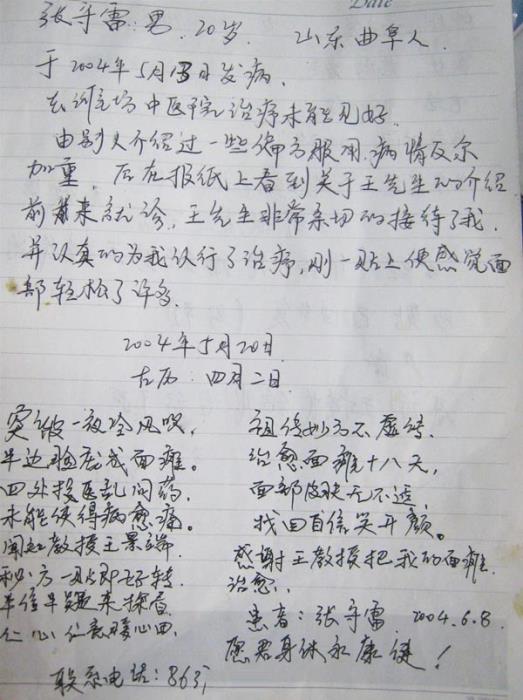 Date
张守雷 男. 20岁. 山东曲阜人.
于2004年5月13日发病.
去 中医院治疗未能见好.
由别人介绍过一些偏方服用.病情反尔
加重. 后在报纸上看到关于王先生的介绍
前来就诊, 王先生非常亲切的接待了我.
并认真的为我认行了治疗,刚一贴上便感觉面
部轻松了许多.
2004年5月20日.
古历: 四月二日
突被一夜冷风吹,
半边脸庞成面瘫。
四外投医乱问药,
未能使得病愈痛。
闻知教授王景
秘方一贴即好转
半信半疑来探看
仁心仁 暖心田.
祖传妙方不虚传.
治愈面瘫十八天,
面部皮肤无不适.
找回自信笑开颜。
感谢王教授把我的面瘫
治愈.
患者: 张守雷. 2004.6.8.
愿君身体永康健!
联系电话: 863